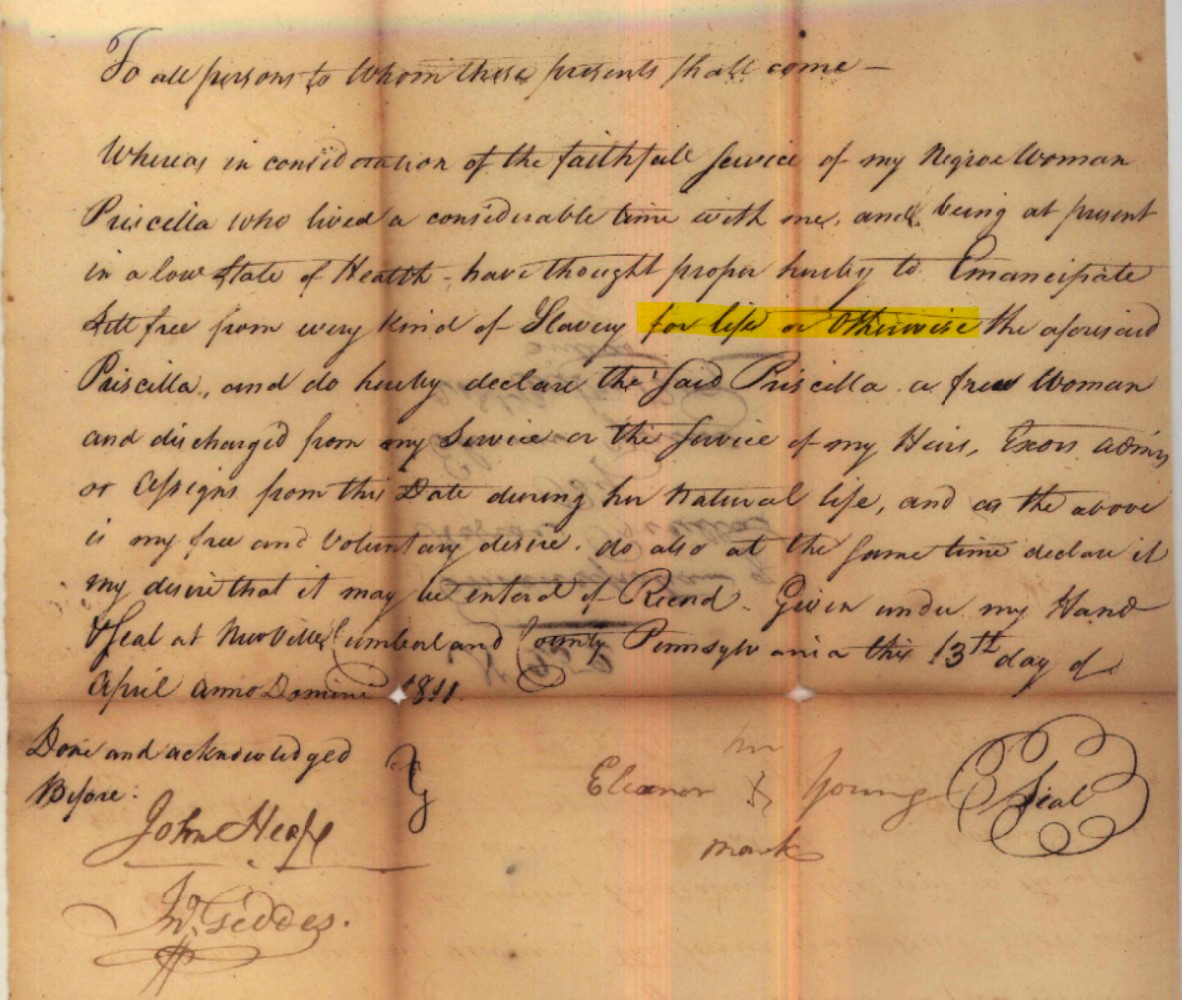 To all persons to Whom these presents shall come —
Whereas in consideration of the faithfull Service of my Negroe Woman
Priscilla who lived a considerable time with me, and being at present
in a low State of Health - have thought proper hereby to Emancipate
Sett free from every kind of Slavery for life or Otherwise the aforesaid
Priscilla, and do hereby declare the Said Priscilla a free Woman
and discharged from my Service or the Service of my Heirs, Exors admrs
or Assigns from this Date during her Natural life, and as the above
is my free and Voluntary desire. do also at the Same time declare it
my desire that it may be enterd of Record. Given under my Hand
& Seal at Newville Cumberland County Pennsylvania this 13th day of
April Anno Domini 1811.
Done and acknowledged
Before:
her
Eleanor X Young Seal
mark
John Heap
Jno. Geddes.